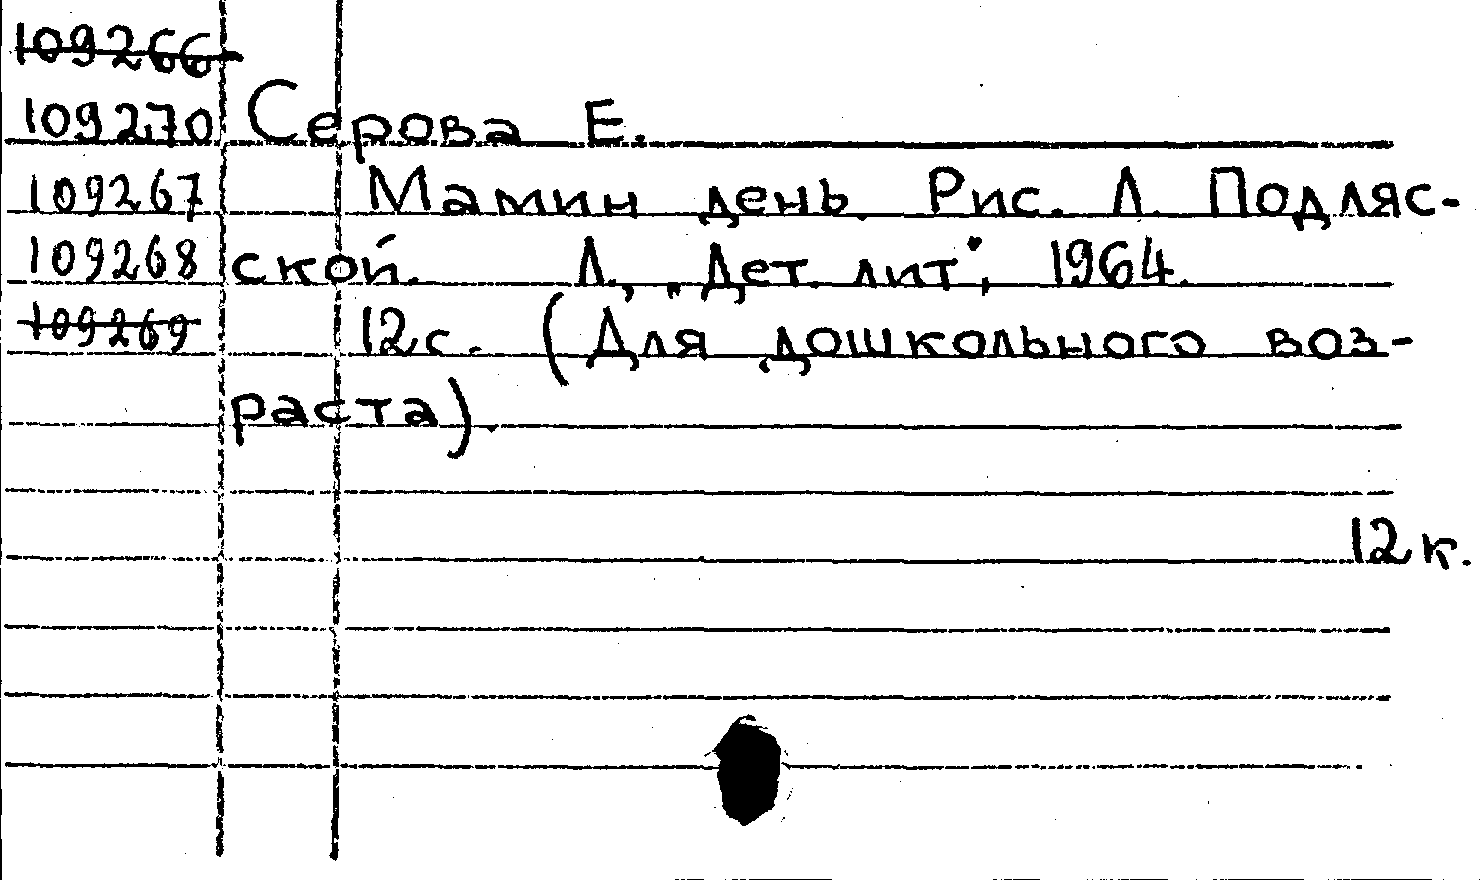 109266
109270 Серова Е.
109267 Мамин день. Рис. Л. Подляс-
109268 ской. Л., „Дет. лит", 1964.
109269 12 с. (Для дошкольного воз-
раста).
12 к.